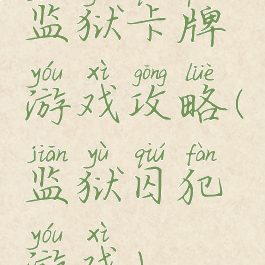 监狱卡牌
yóu xì gōng lüè
游戏攻略(
jiān yù qiú fàn
监狱囚犯
yóu xì
游戏)